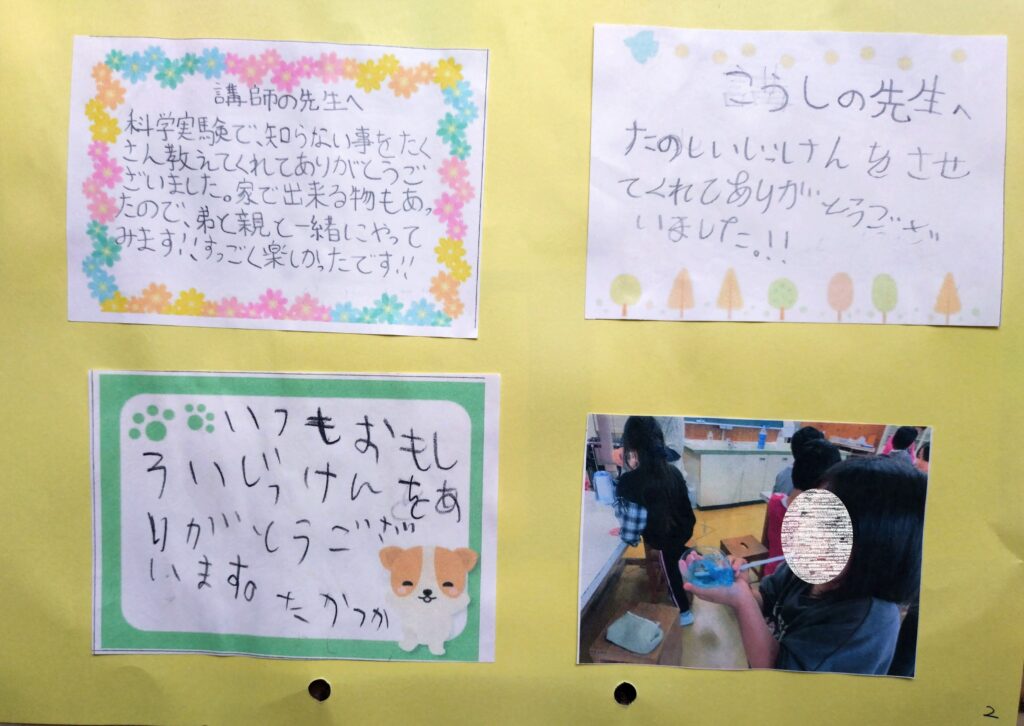 講師の先生へ
科学実験で、知らない事をたく
さん教えてくれてありがとうご
ざいました。家で出来る物もあっ
たので、弟と親と一緒にやって
みます!!すっごく楽しかったです!!
こうしの先生へ
たのしいじっけんをさせ
てくれてありがとうござ
いました。!!
いつもおもし
ろいじっけんをあ
りがとうござ
います。
たかつか
2